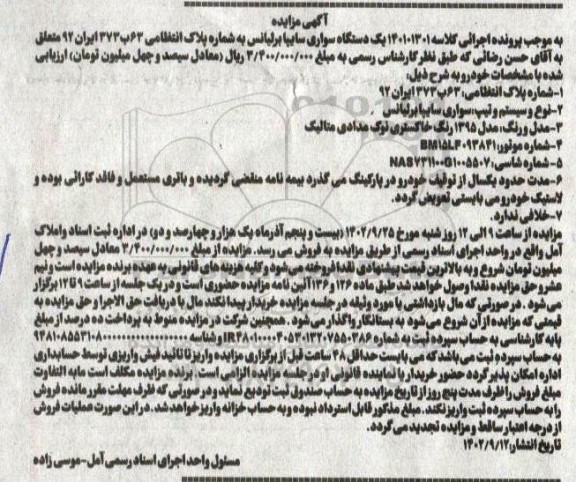 آگهی مزایده
به موجب پرونده اجرائی کلاسه ۱۴۰۱۰۱۳۰۱ یک دستگاه سواری سایپا برلیانس به شماره پلاک انتظامی ۶۳ب۳۷۳ ایران ۹۲ متعلق
به آقای حسن رضائی که طبق نظر کارشناس رسمی به مبلغ ۳/۴۰۰/۰۰۰/۰۰۰ ریال (معادل سیصد و چهل میلیون تومان) ارزیابی
شده با مشخصات خودرو به شرح ذیل:
۱-شماره پلاک انتظامی: ۶۳ب۳۷۳ ایران ۹۲
۲-نوع و سیستم و تیپ: سواری سایپا برلیانس
۳-مدل و رنگ: مدل ۱۳۹۵ رنگ خاکستری نوک مدادی متالیک
۴-شماره موتور: BM15LF۰۹۳۸۴۱
۵-شماره شاسی: NAS۷۳۱۱۰۰G۱۰۰۵۵۰۷
۶-مدت حدود یکسال از توقیف خودرو در پارکینگ می گذرد بیمه نامه منقضی گردیده و باتری مستعمل و فاقد کارائی بوده و
لاستیک خودرو می بایستی تعویض گردد.
۷-خلافی ندارد.
مزایده از ساعت ۹ الی ۱۲ روز شنبه مورخ ۱۴۰۲/۹/۲۵ (بیست و پنجم آذرماه یک هزار و چهارصد و دو) در اداره ثبت اسناد و املاک
آمل واقع در واحد اجرای اسناد رسمی از طریق مزایده به فروش می رسد. مزایده از مبلغ ۳/۴۰۰/۰۰۰/۰۰۰ معادل سیصد و چهل
میلیون تومان شروع و به بالاترین قیمت پیشنهادی نقدا فروخته می شود و کلیه هزینه های قانونی به عهده برنده مزایده است و نیم
عشر و حق مزایده نقدا وصول خواهد شد طبق ماده ۱۲۶ و ۱۳۶ آئین نامه مزایده حضوری است و در یک جلسه از ساعت ۹ تا ۱۲ برگزار
می شود. در صورتی که مال بازداشتی یا مورد وثیقه در جلسه مزایده خریدار پیدا نکند مال با دریافت حق الاجرا و حق مزایده به
قیمتی که مزایده از آن شروع می شود به بستانکار واگذار می شود. همچنین شرکت در مزایده منوط به پرداخت ده درصد از مبلغ
پایه کارشناسی به حساب سپرده ثبت به شماره و شناسه
به حساب سپرده ثبت می باشد که می بایست حداقل ۴۸ ساعت قبل از برگزاری مزایده واریز تا تائید فیش واریزی توسط حسابداری
اداره امکان پذیر گردد حضور خریدار یا نماینده قانونی او در جلسه مزایده الزامی است. برنده مزایده مکلف است مابه التفاوت
مبلغ فروش را ظرف مدت پنج روز از تاریخ مزایده به حساب صندوق ثبت تودیع نماید و در صورتی که ظرف مهلت مقرر مانده فروش
را به حساب سپرده ثبت واریز نکند، مبلغ مذکور قابل استرداد نبوده و به حساب خزانه واریز خواهد شد. در این صورت عملیات فروش
از درجه اعتبار ساقط و مزایده تجدید می گردد.
تاریخ انتشار: ۱۴۰۲/۹/۱۲
مسئول واحد اجرای اسناد رسمی آمل-موسی زاده